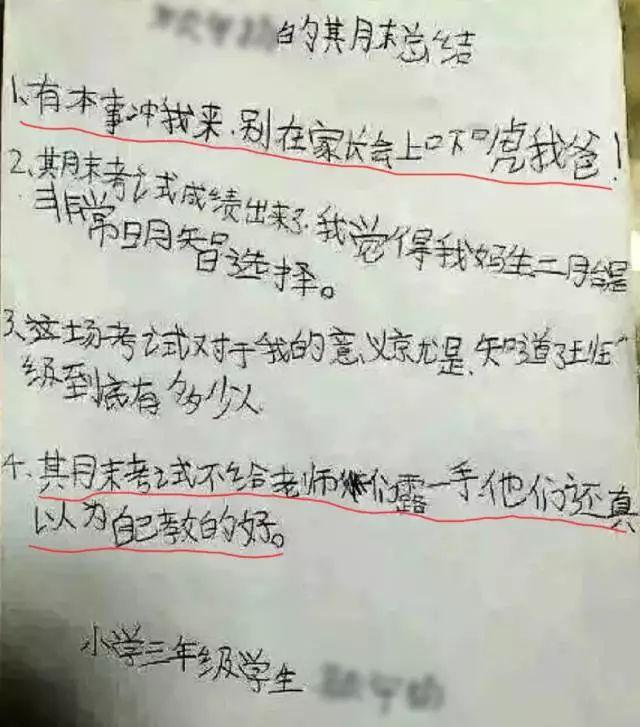 的期末总结
1、有本事冲我来,别在家长会上吓唬我爸!
2、期末考试成绩出来了,我觉得我妈生二胎是
非常明智选择。
3、这场考试对于我的意义就是,知道了班
级到底有多少人
4、期末考试不给老师们露一手,他们还真
以为自己教的好。
小学三年级学生